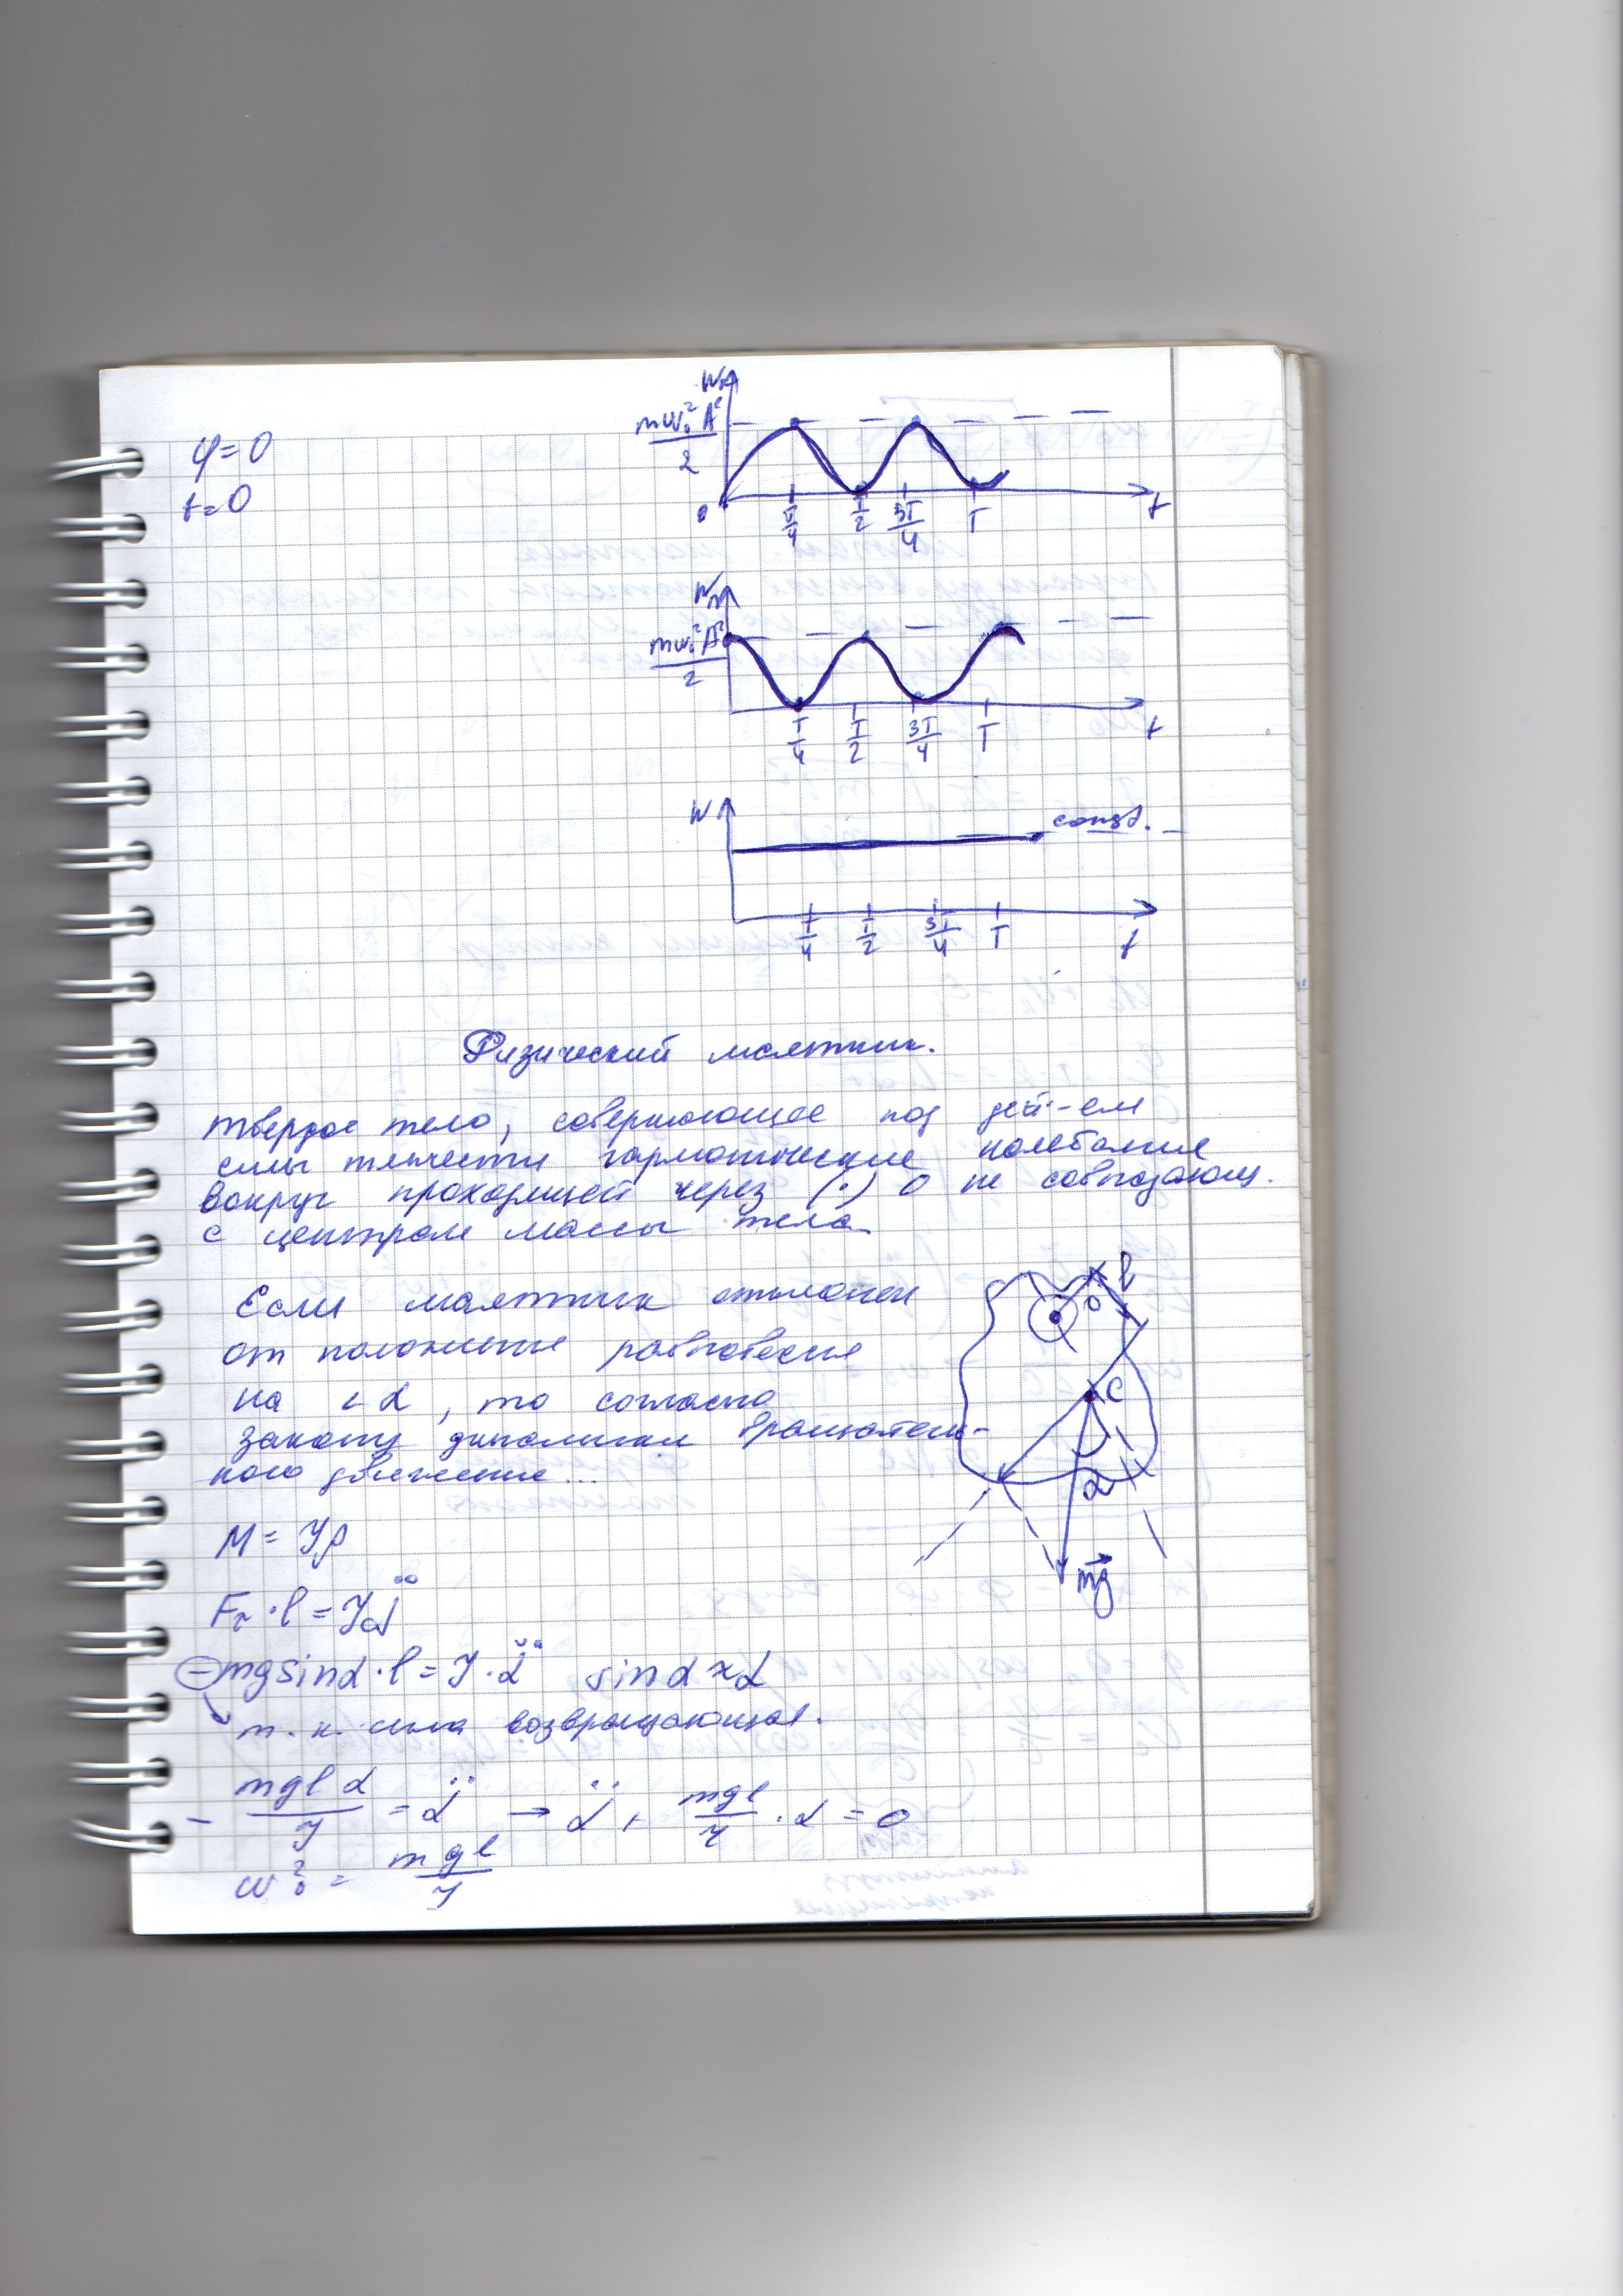 φ=0
t=0
Wк
mω₀²A²
2
0
T/4 T/2 3T/4 T t
Wп
mω₀²A²
2
T/4 T/2 3T/4 T t
W const.
T/4 T/2 3T/4 T t
Физический маятник.
твердое тело, совершающее под дей-ем
силы тяжести гармонические колебания
вокруг проходящей через (·) О не совпадающ.
с центром массы тела
Если маятник отклонен
от положения равновесия
на ∠α, то согласно
закону динамики вращатель-
ного движения...
l
O
C
α
mg
M = Jβ
Fτ·l = Jα̈
-mgsinα·l = J·α̈ sinα≈α
т.к. сила возвращающая.
- mglα/J = α̈ → α̈ + mgl/J · α = 0
ω₀² = mgl/J